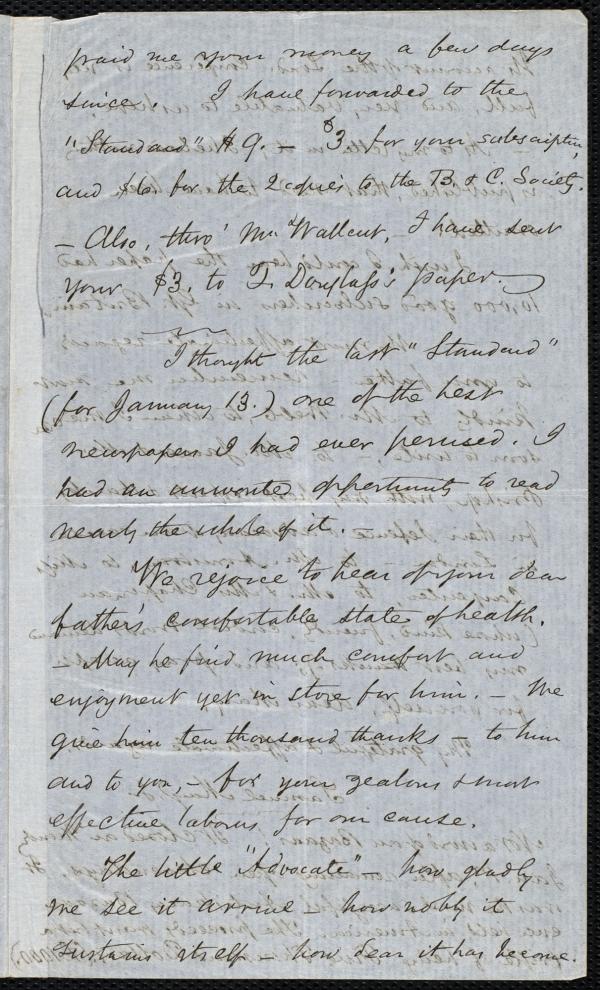 paid me your money a few days
since. I have forwarded to the
"Standard" $9. – $3 for your subscription,
and $6. for the 2 copies to the B. & C. Society.
– Also, thro' Mr. Wallcut, I have sent
your $3. to F. Douglass's paper. –
I thought the last "Standard"
(for January 13.) one of the best
newspapers I had ever perused. I
had an unwonted opportunity to read
nearly the whole of it. –
We rejoice to hear of your dear
father's comfortable state of health.
– May he find much comfort and
enjoyment yet in store for him. – We
give him ten thousand thanks – to him
and to you, – for your zealous & most
effective labours for our cause.
The little "Advocate" – how gladly
we see it arrive – how nobly it
sustains itself – how dear it has become.